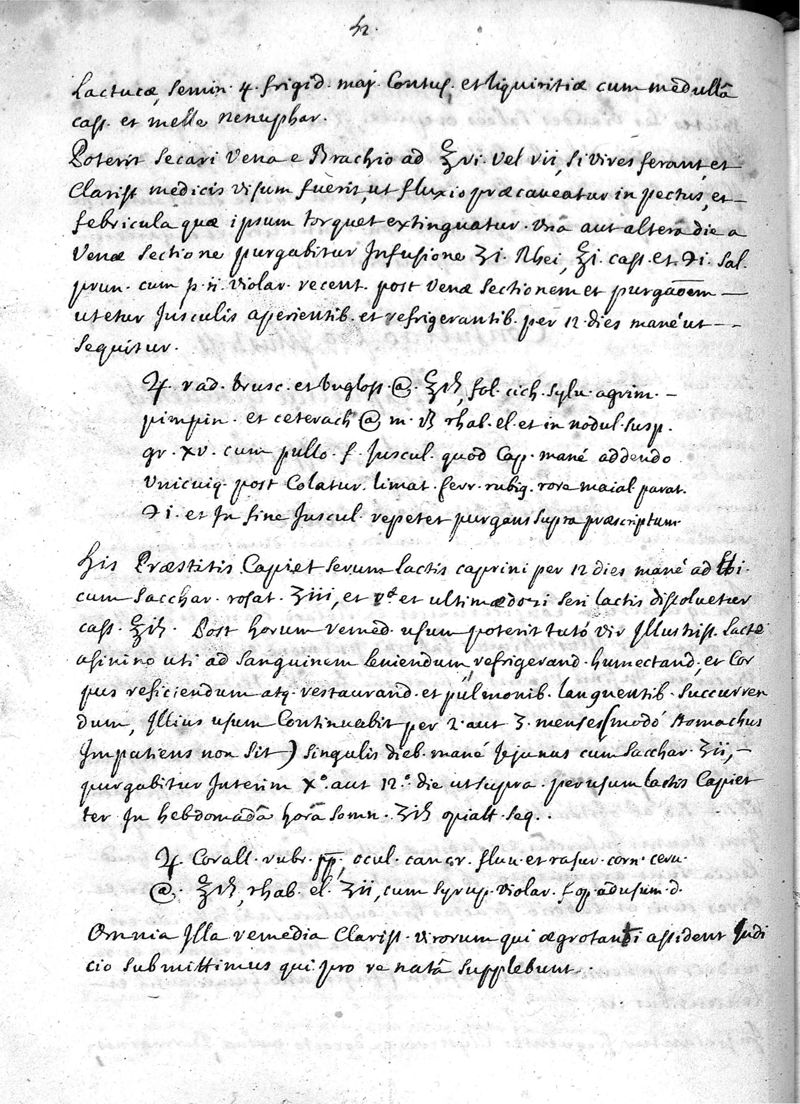 42.
Lactucæ, Semin. 4. frigid. maj. Contus, et liquiritiæ cum medullâ
cass. et melle nenuphar.
Poterit Secari Vena e Brachio ad ℥vi. Vel vii, si vires ferant, et
Clariss medicis visum fuerit, ut fluxio præcaveatur in pectus, et –
febricula quæ ipsum torquet extinguatur. Unâ aut alterâ die a
Venæ Sectione purgabitur Infusione ʒi. Rhei, ℥i. cass. et. ℈i. Sal.
prun. cum p. ii. violar. recent. post Venæ Sectionem et purgãoem —
utetur Jusculis aperientib. et refrigerantib. per 12. dies manè ut – –
Sequitur.
♃ rad. brusc. et bugloss. @. ℥ß, fol. cich. sylv. agrim. –
pimpin. et ceterach @ m. ß rhab. el. et in nodul. susp.
gr. xv. cum pullo. f. Juscul. quod Cap. manè addendo
Unicuiq. post Colatur. limat. ferr. rubig. rore maial. parat.
℈i. et In fine Juscul. repetet purgans supra præscriptum
His Præstitis Capiet serum lactis caprini per 12 dies manè ad ℔i.
cum Sacchar. rosat. ʒiii, et et ultimæ dosi seri lactis dissoluetur
cass. ℥iß. Post horum remed. usum poterit tutò vir Illustriss. lacte
asinino uti ad Sanguinem leniendum, refrigerand. humectand. et Cor
pus reficiendum atq. restaurand. et pulmonib. languentib. Succurren
dum, Illius usum Continuabit per 2. aut 3. menses (modò stomachus
Impatiens non Sit) singulis dieb. manè Jejunus cum Sacchar. ʒii, –
purgabitur Interim X.º aut 12.º die ut supra. per usum lactis Capiet
ter In hebdomadâ horâ Somn. ʒiß opiatt. Seq..
♃ Corall. rubr. pp, ocul. cancr. fluu. et rasur. corn. ceru.
@. ℥iß, rhab. el. ʒii, cum Syrup. violar. f. op. ad usum. d.
Omnia Illa remedia Clariss. virorum qui ægrotanti assident Judi
cio submittimus qui pro re natâ supplebunt..